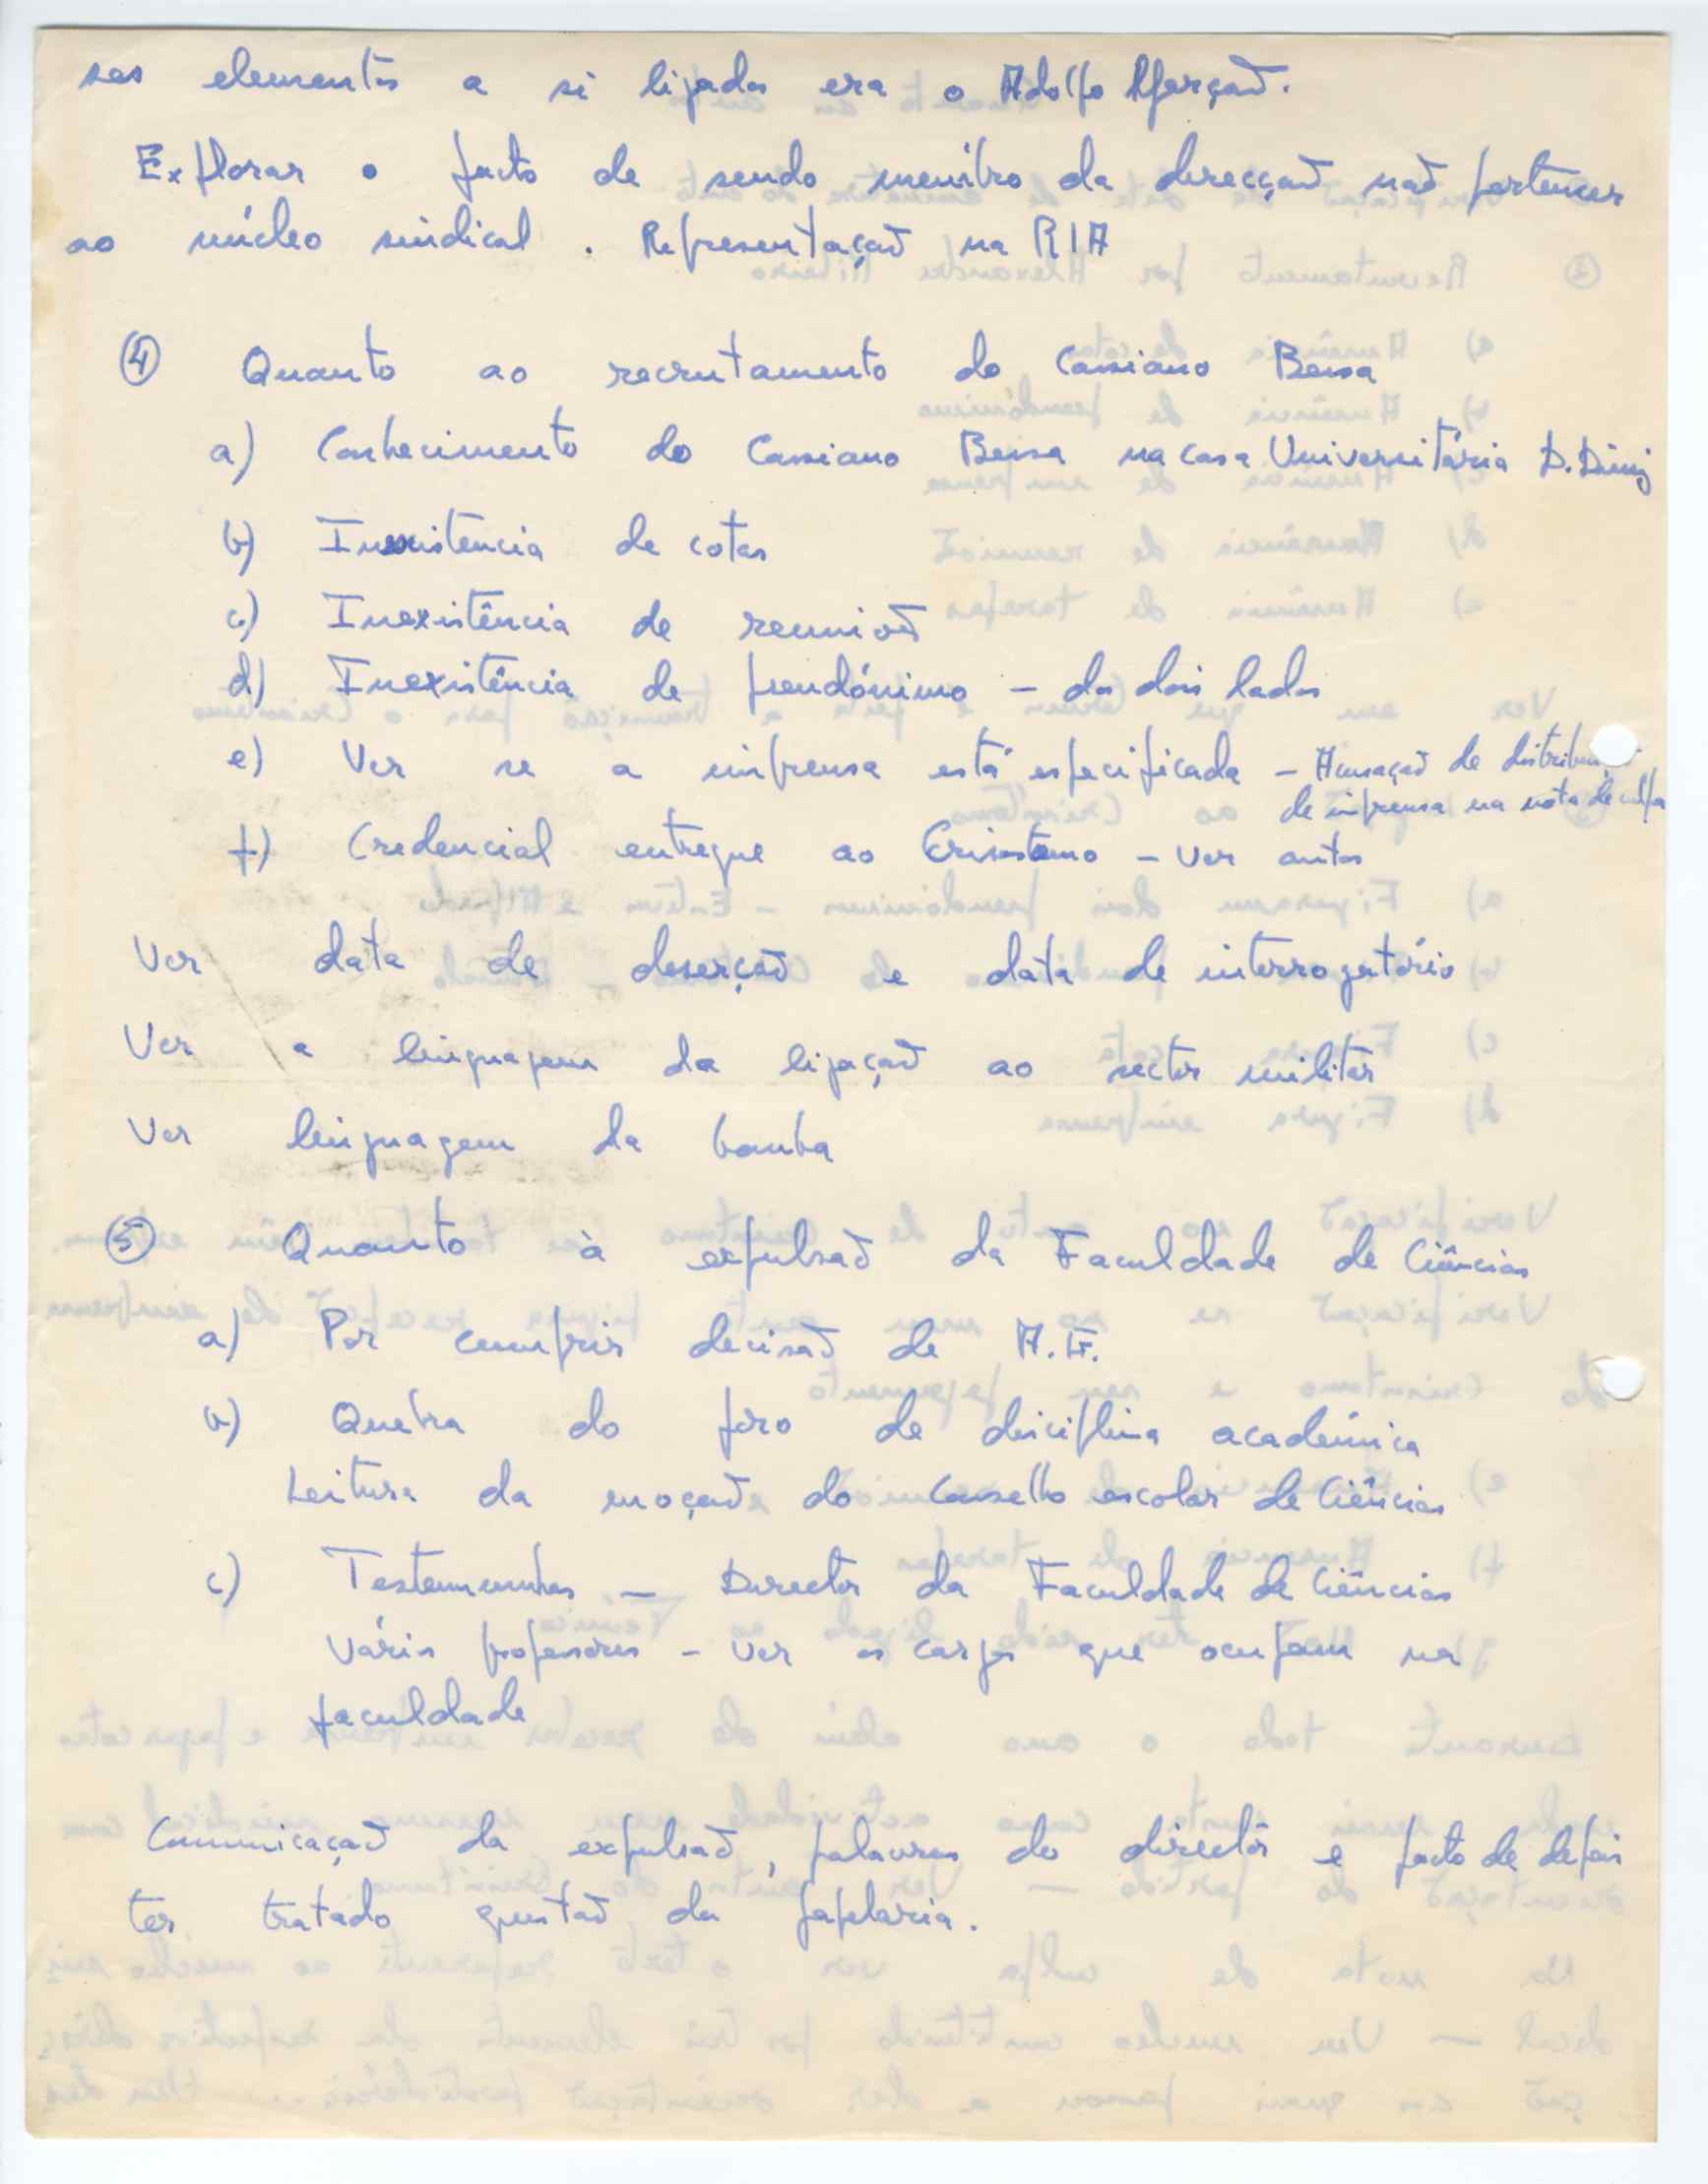 ses elementos a si ligados era o Adolfo
Explorar o facto de sendo membro da direcção não pertencer
ao núcleo sindical. Representação na RIA
④ Quanto ao recrutamento do Cassiano Bessa
a) Conhecimento do Cassiano Bessa na casa Universitária D. Dinis
b) Inexistencia de cotas
c) Inexistência de reunião
d) Inexistência de pseudónimo - dos dois lados
e) Ver se a imprensa está especificada - Acusação de
de imprensa na nota de culpa
f) Credencial entregue ao Crisostomo - Ver autos
Ver data de deserção e data de interrogatório
Ver a linguagem da ligação ao sector militar
Ver linguagem da bomba
⑤ Quanto à expulsão da Faculdade de Ciências
a) Por cumprir decisão de
b) Quebra do foro de disciplina académica
Leitura da moção do Conselho escolar de Ciências
c) Testemunhas - Director da Faculdade de Ciências
Vários professores - Ver os cargos que ocupam na
faculdade
Comunicação da expulsão, palavras do director e facto de depois
ter tratado questão da papelaria.